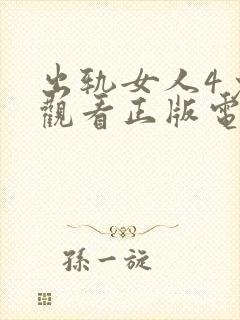 出轨女人4
觀看正版電
孫一旋